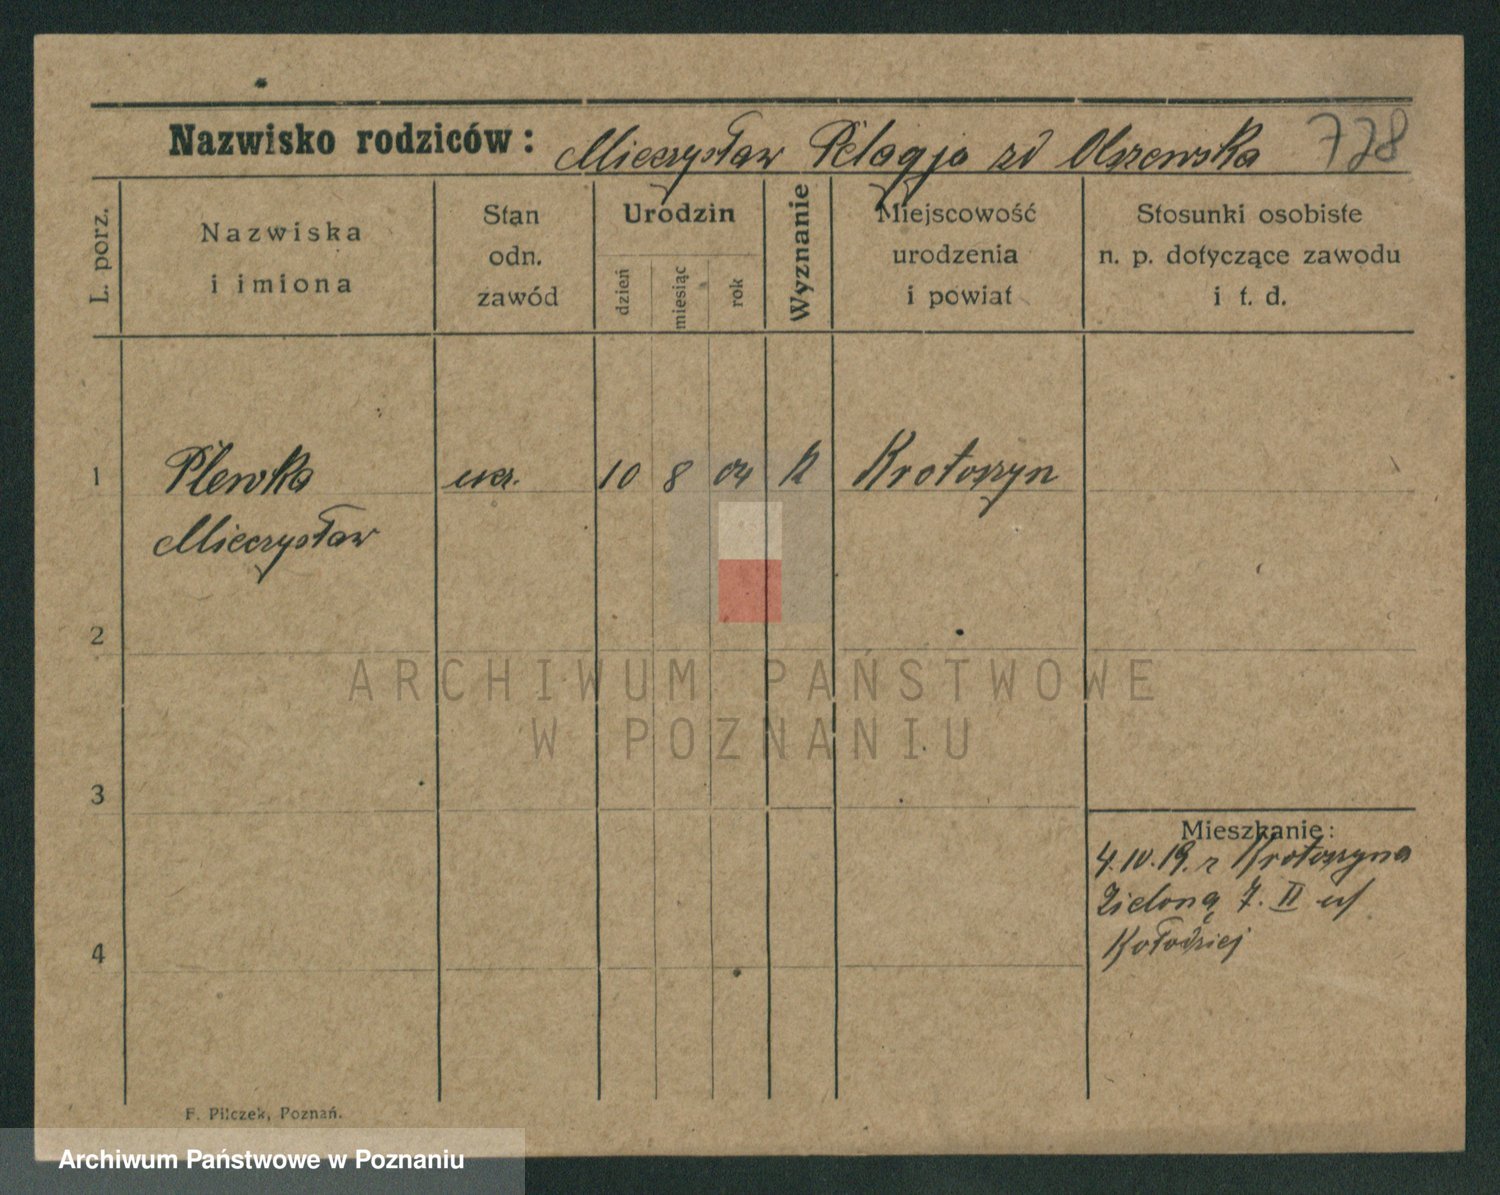 Nazwisko rodziców: Mieczysław Pelagja zd Olszewska 728
L. porz.
Nazwiska
i imiona
Stan
odn.
zawód
Urodzin
dzień
miesiąc
rok
Wyznanie
Miejscowość
urodzenia
i powiat
Stosunki osobiste
n. p. dotyczące zawodu
i t. d.
1 Plewka ucz. 10 8 04 k Krotoszyn
Mieczysław
2
ARCHIWUM PAŃSTWOWE
W POZNANIU
3
Mieszkanie:
4.IV.19. z Krotoszyna
Zielona 7. II u/
Kołodziej
4
F. Pilczek, Poznań.
Archiwum Państwowe w Poznaniu